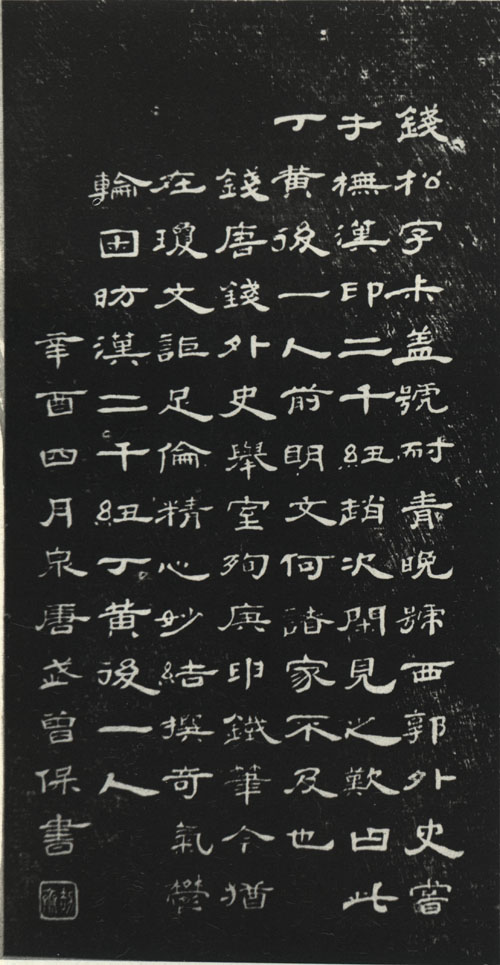 錢松字尗蓋號耐青晚號西郭外史嘗
手橅漢印二千紐趙次閑見之歎曰此
丁黃後一人前明文何諸家不及也
錢唐錢外史舉室殉庚申鐵筆今猶
在瓊文詎足倫精心妙結撰奇氣鬱
輪囷昉漢二千紐丁黃後一人
辛酉四月泉唐武曾保書